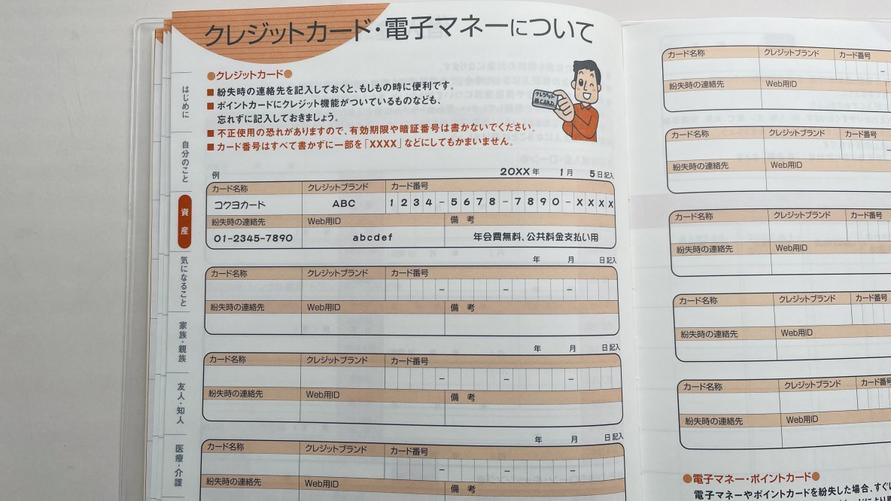 クレジットカード・電子マネーについて
●クレジットカード●
■ 紛失時の連絡先を記入しておくと、もしもの時に便利です。
■ ポイントカードにクレジット機能がついているものなども、
忘れずに記入しておきましょう。
■ 不正使用の恐れがありますので、有効期限や暗証番号は書かないでください。
■ カード番号はすべて書かずに一部を「XXXX」などにしてもかまいません。
はじめに
自分のこと
資産
気になること
家族・親族
友人・知人
医療・介護
例 20XX年 1月 5日記入
カード名称 クレジットブランド カード番号
コクヨカード ABC 1234-5678-7890-XXXX
紛失時の連絡先 Web用ID 備考
01-2345-7890 abcdef 年会費無料、公共料金支払い用
年 月 日記入
カード名称 クレジットブランド カード番号
紛失時の連絡先 Web用ID 備考
年 月 日記入
カード名称 クレジットブランド カード番号
紛失時の連絡先 Web用ID 備考
年 月 日記入
カード名称 クレジットブランド カード番号
紛失時の連絡先 Web用ID 備考
カード名称 クレジットブランド カード番号
紛失時の連絡先 Web用ID
カード名称 クレジットブランド カード番号
紛失時の連絡先 Web用ID
カード名称 クレジットブランド カード番号
紛失時の連絡先 Web用ID
カード名称 クレジットブランド カード番号
紛失時の連絡先 Web用ID
カード名称 クレジットブランド カード番
紛失時の連絡先 Web用ID
●電子マネー・ポイントカード●
電子マネーやポイントカードを紛失した場合、すぐに